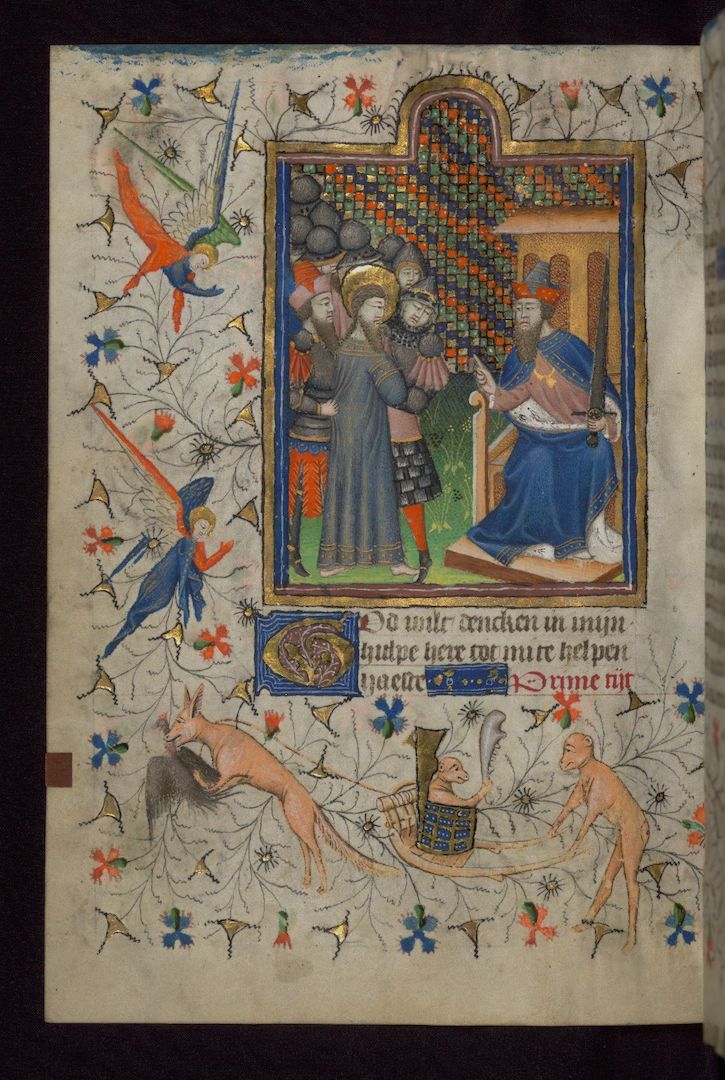 God wilt dencken in mijn
hulpe here tot mi te helpen
haeste Prime tijt